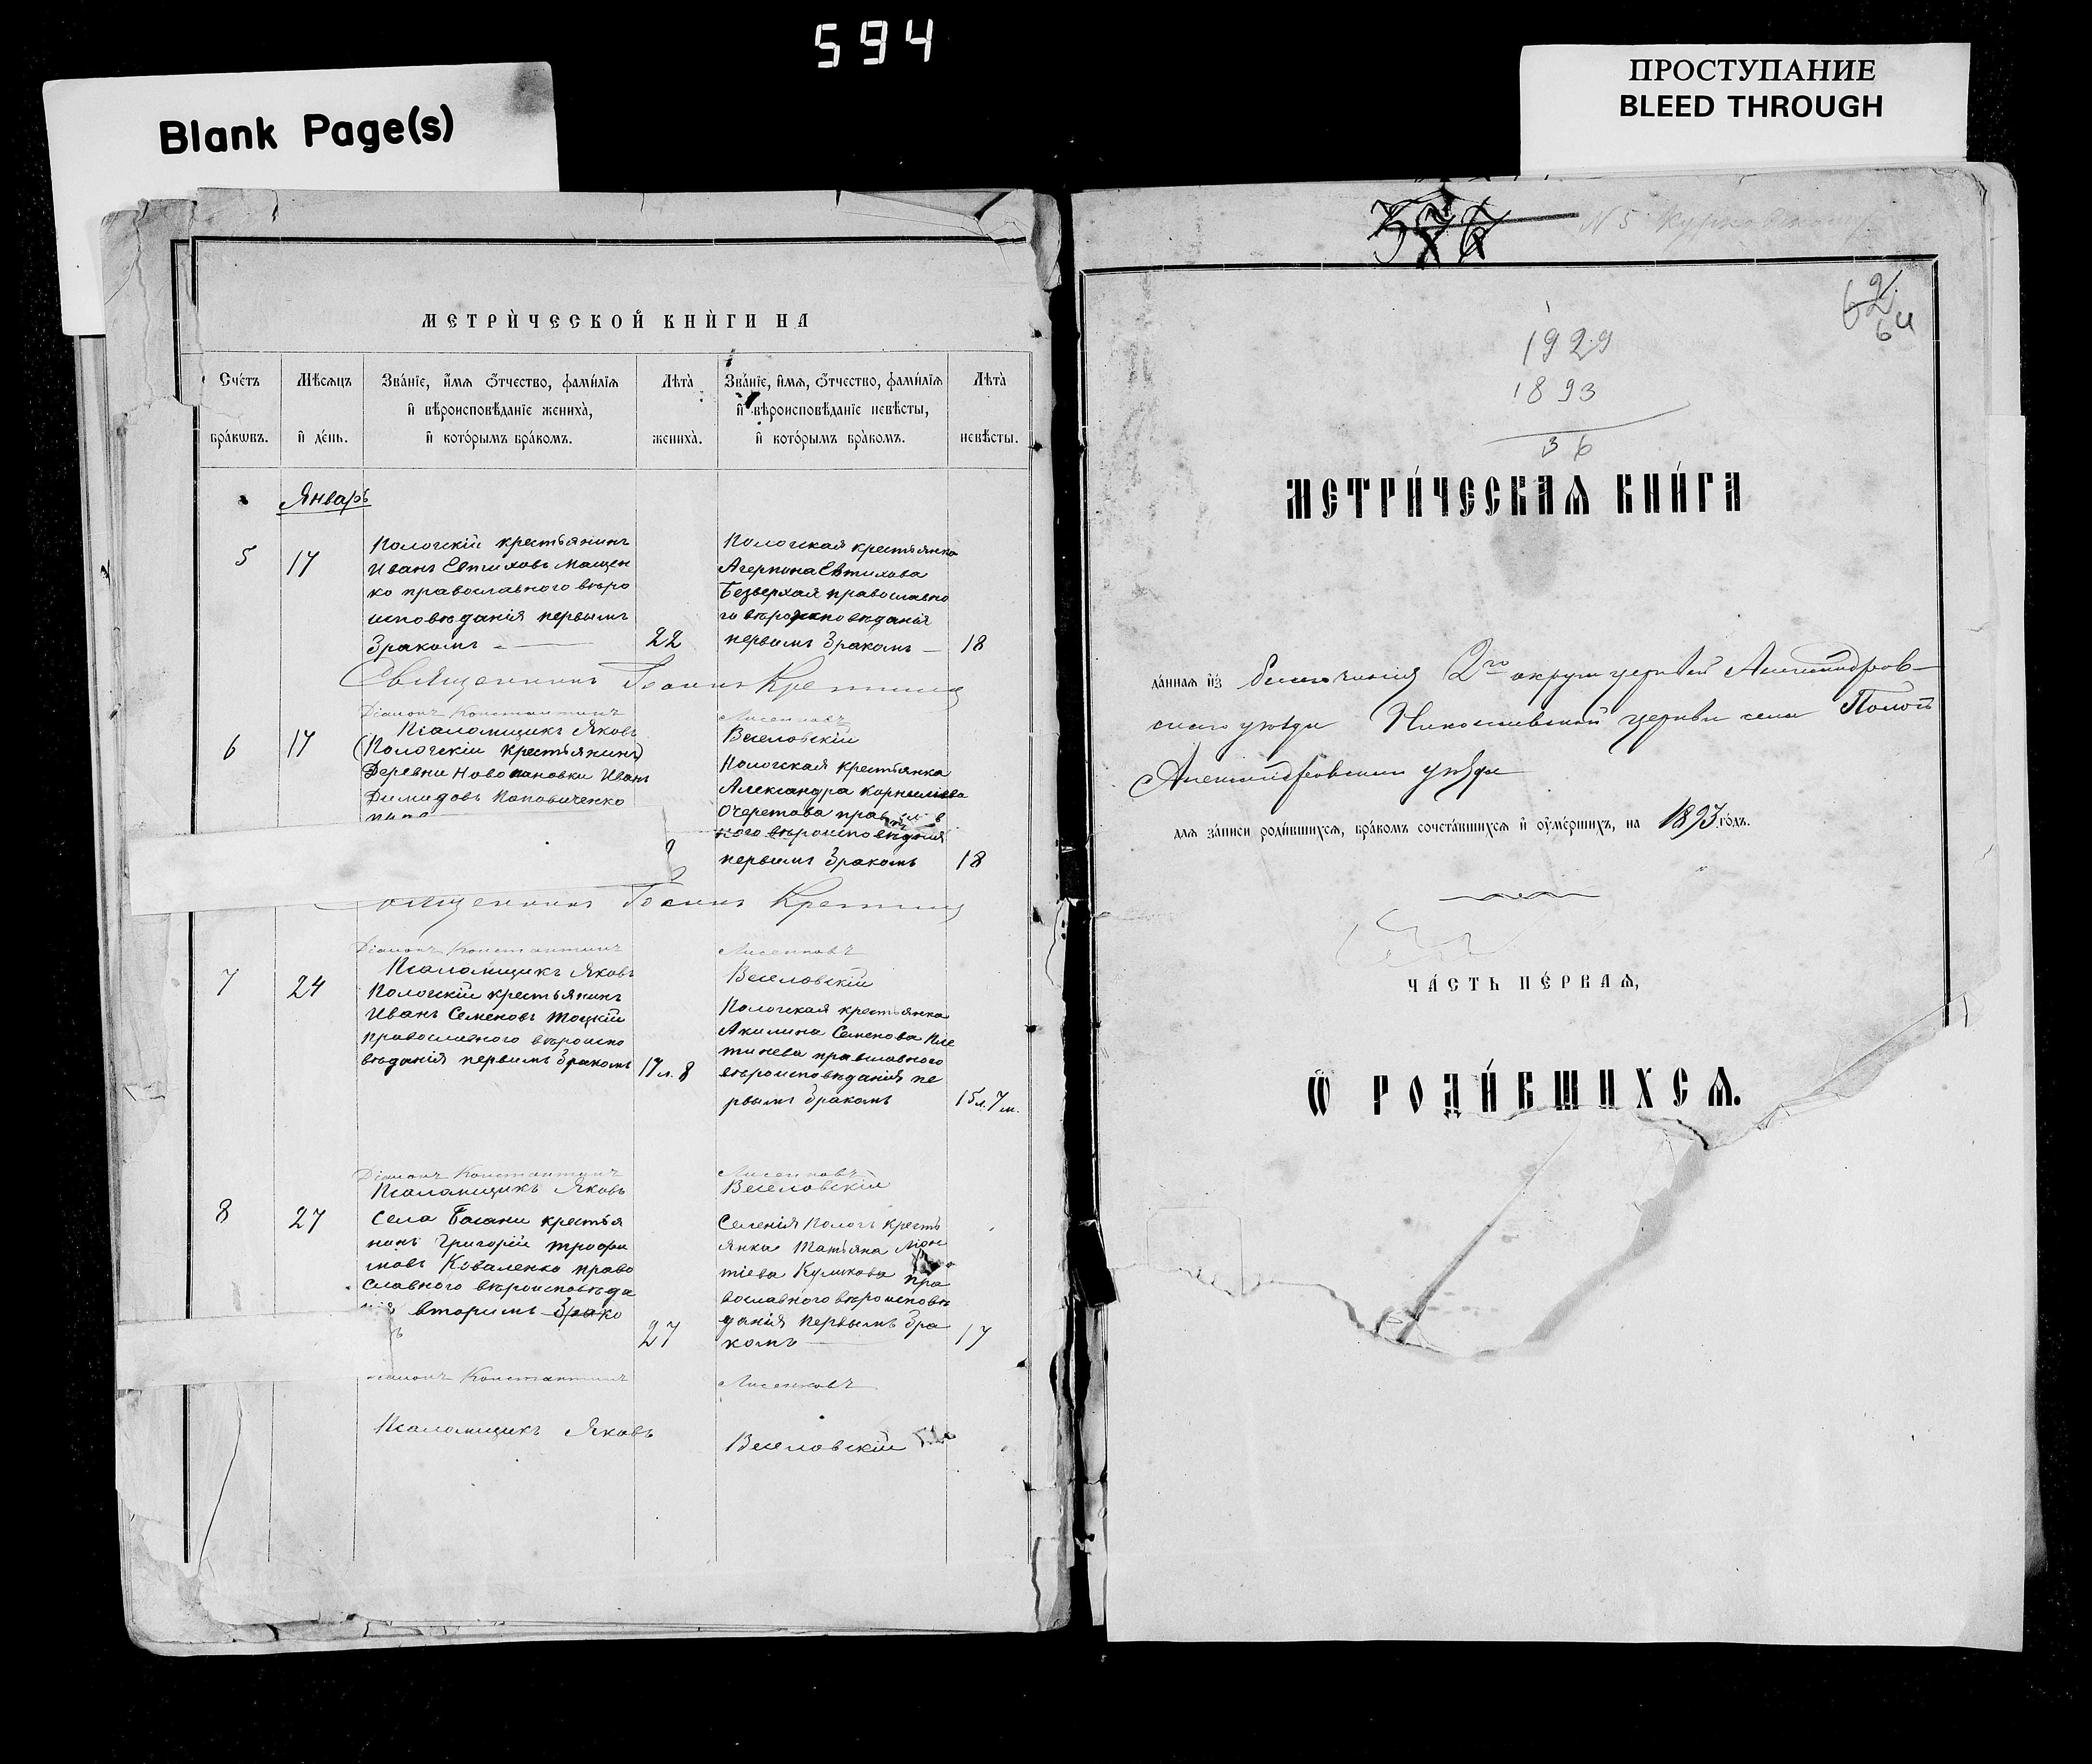 594
Blank Page(s)
ПРОСТУПАНИЕ
BLEED THROUGH
МЕТРИ́ЧЕСКОЙ КНИ́ГИ НА
Сче́тъ бра́кѡвъ.
Мѣ́сѧцъ и҆ де́нь.
Зва́нїе, и҆́мѧ ѻ҆́тчество, фами́лїѧ и҆ вѣроисповѣ́данїе жениха̀, и҆ кото́рымъ бра́комъ.
Лѣта̀ жениха̀.
Зва́нїе, и҆́мѧ, ѻ҆́тчество, фами́лїѧ и҆ вѣроисповѣ́данїе невѣ́сты, и҆ кото́рымъ бра́комъ.
Лѣта̀ невѣ́сты.
Январь
5
17
Пологскій крестьянинъ
Иванъ Евтиховъ Мащен
ко православного вѣро
исповѣданія первымъ
бракомъ
22
Пологская крестьянка
Агерпина Евтихова
Безверхая православно
го вѣроисповѣданія
первымъ бракомъ
18
Священникъ Іоаннъ
Діаконъ Константинъ Лисенковъ
Псаломщикъ Яковъ Веселовскій
6
17
Пологскій крестьянинъ
Деревни Новопановки Иванъ
Димидовъ Поповиченко
Пологская крестьянка
Александра Корнилиева
Очеретова прав
ного вѣроисповѣданія
первымъ бракомъ
18
Іоаннъ
Діаконъ Константинъ Лисенковъ
Псаломщикъ Яковъ Веселовскій
7
24
Пологскій крестьянинъ
Иванъ Семеновъ Тоцкій
православного вѣроиспо
вѣданія первымъ бракомъ
17 л. 8
Пологская крестьянка
Акилина Семенова Пле
тнева православного
вѣроисповѣданія пе
рвымъ бракомъ
15 л. 7 м.
Діаконъ Константинъ Лисенковъ
Псаломщикъ Яковъ Веселовскій
8
27
Села Басани крестья
нинъ Григорій Трофи
мовъ Коваленко право
славного вѣроисповѣда
вторымъ брако
27
Селенія Пологъ кресть
янка Татьяна
Куликова пра
вославного вѣроисповѣ
данія первымъ бра
комъ
17
Константинъ Лисенковъ
Псаломщикъ Яковъ Веселовскій
576
N 5
62
64
1929
1893
36
МЕТРИ́ЧЕСКАѦ КНИ́ГА
да́ннаѧ и҆з̾ благочинія 2го округа церквей Александров-
скаго уѣзда Николаевской церкви села Пологъ
Александровскаго уѣзда
длѧ за́писи роди́вшихсѧ, бра́комъ сочета́вшихсѧ и҆ ᲂу҆ме́ршихъ, на 1893 го́дъ.
ЧА́СТЬ ПЕ́РВАѦ,
Ѽ РОДИ́ВШИХСѦ.